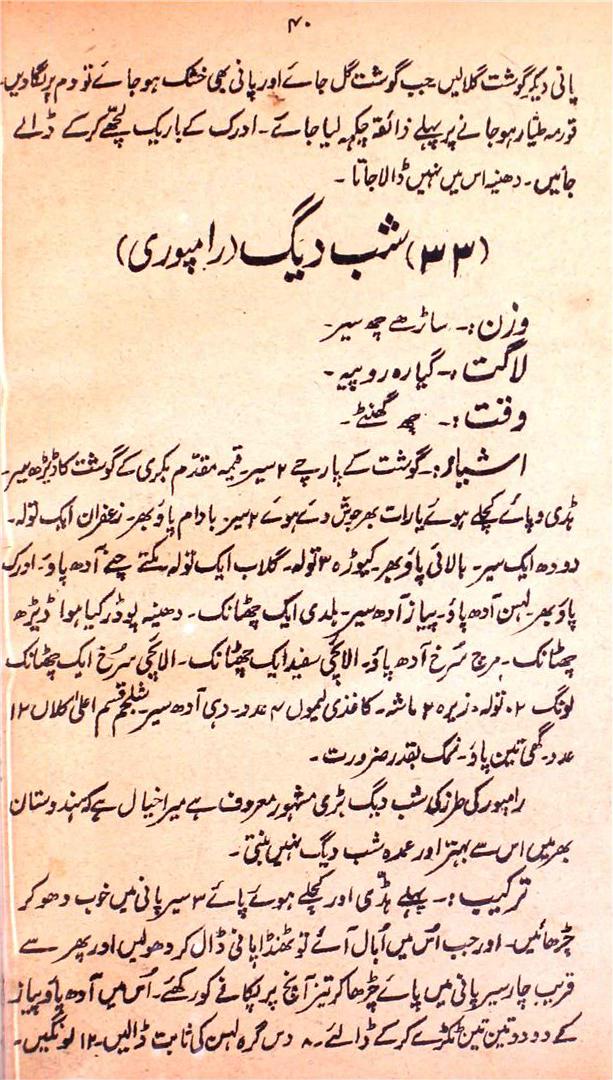 ۴۰
پانی دیکر گوشت گلالیں جب گوشت گل جائے اور پانی بھی خشک ہو جائے تو دم پر لگادیں۔
قورمہ طیار ہو جانے پر پہلے ذائقہ چکھ لیا جائے۔ ادرک کے باریک لچھے کرکے ڈالے
جائیں۔ دھنیہ اس میں نہیں ڈالا جاتا۔
(۳۳) شب دیگ (رامپوری)
وزن:۔ ساڑھے چھ سیر۔
لاگت:۔ گیارہ روپیہ۔
وقت:۔ چھ گھنٹے۔
اشیاء:۔ گوشت کے پارچے ۲ سیر۔ قیمہ مقدم بکری کے گوشت کا ڈیڑھ سیر۔
ہڈی و پائے کچلے ہوئے یا رات بھر جوش دے ہوئے ۲ سیر۔ بادام پاؤ بھر۔ زعفران ایک تولہ۔
دودھ ایک سیر۔ بالائی پاؤ بھر۔ کیوڑہ ۳ تولہ۔ گلاب ایک تولہ۔ چنے آدھ پاؤ۔ ادرک
پاؤ بھر۔ لہسن آدھ پاؤ۔ پیاز آدھ سیر۔ ہلدی ایک چھٹانک۔ دھنیہ پوڈر کیا ہوا ڈیڑھ
چھٹانک۔ مرچ سُرخ آدھ پاؤ۔ الائچی سفید ایک چھٹانک۔ الائچی سُرخ ایک چھٹانک
لونگ ۲ تولہ۔ زیرہ ۲ ماشہ۔ کاغذی لیموں ۴ عدد۔ دہی آدھ سیر۔ شلجم قسم اعلیٰ کلاں ۱۲
عدد۔ گھی تین پاؤ۔ نمک بقدر ضرورت۔
رامپور کی طرز کی شب دیگ بڑی مشہور معروف ہے میرا خیال ہے کہ ہندوستان
بھر میں اس سے بہتر اور عمدہ شب دیگ نہیں بنتی۔
ترکیب:۔ پہلے ہڈّی اور کچلے ہوئے پائے ۳ سیر پانی میں خوب دھو کر
چڑھائیں۔ اور جب اُس میں اُبال آئے تو ٹھنڈا پانی ڈال کر دھولیں اور پھر سے
قریب چار سیر پانی میں پائے چڑھا کر تیز آنچ پر پکانے کو رکھئے۔ اُس میں آدھ پاؤ پیاز
کے دو دو تین تین ٹکڑے کرکے ڈالئے۔ ۸ دس گرہ لہسن کی ثابت ڈالیں۔ ۱۲ لونگیں۔